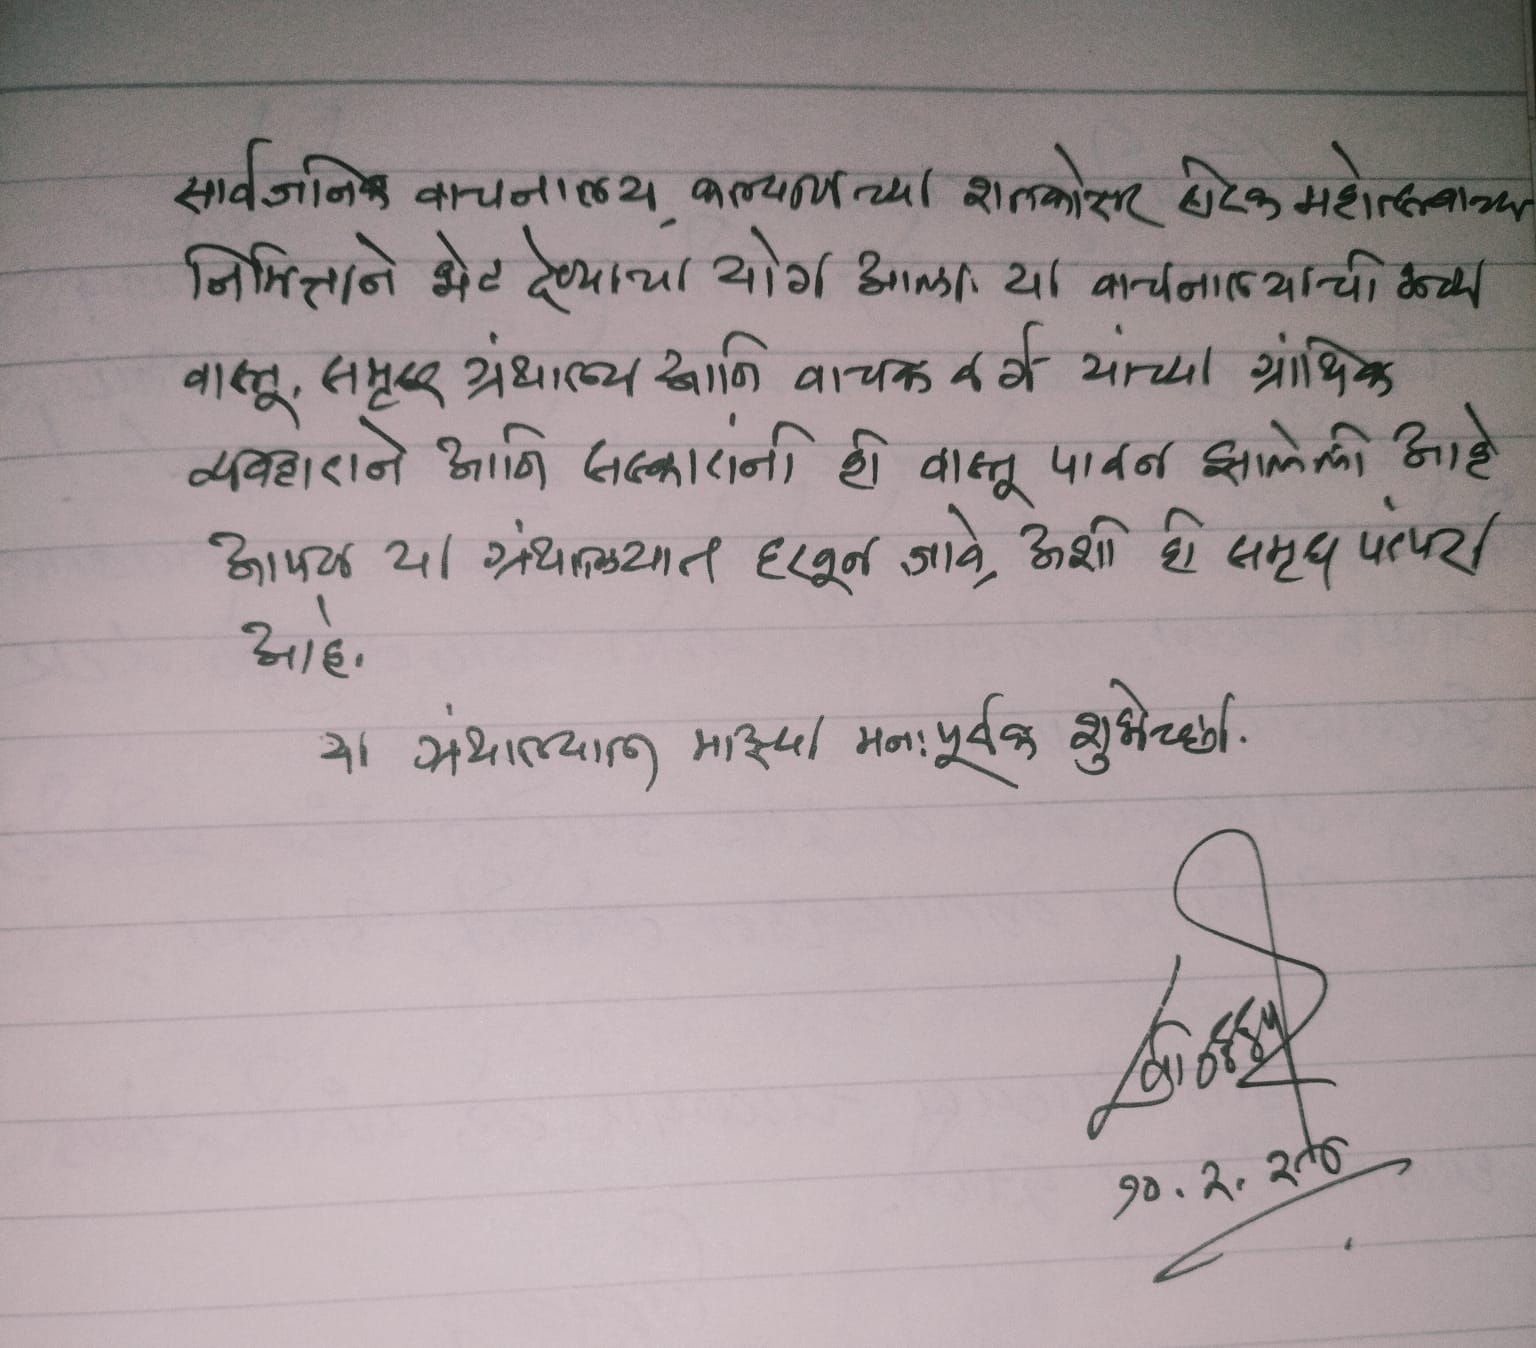 सार्वजनिक वाचनालय, कल्याणच्या शतकोत्तर हीरक महोत्सवाच्या
निमित्ताने भेट देण्याचा योग आला. या वाचनालयाची भव्य
वास्तू, समृद्ध ग्रंथालय आणि वाचक वर्ग यांच्या ग्रांथिक
व्यवहाराने आणि सत्काराने ही वास्तू पावन झालेली आहे
आपण या ग्रंथालयात हरवून जावे, अशी ही समृध परंपरा
आहे.
या ग्रंथालयास माझ्या मनःपूर्वक शुभेच्छा.
१०.२.